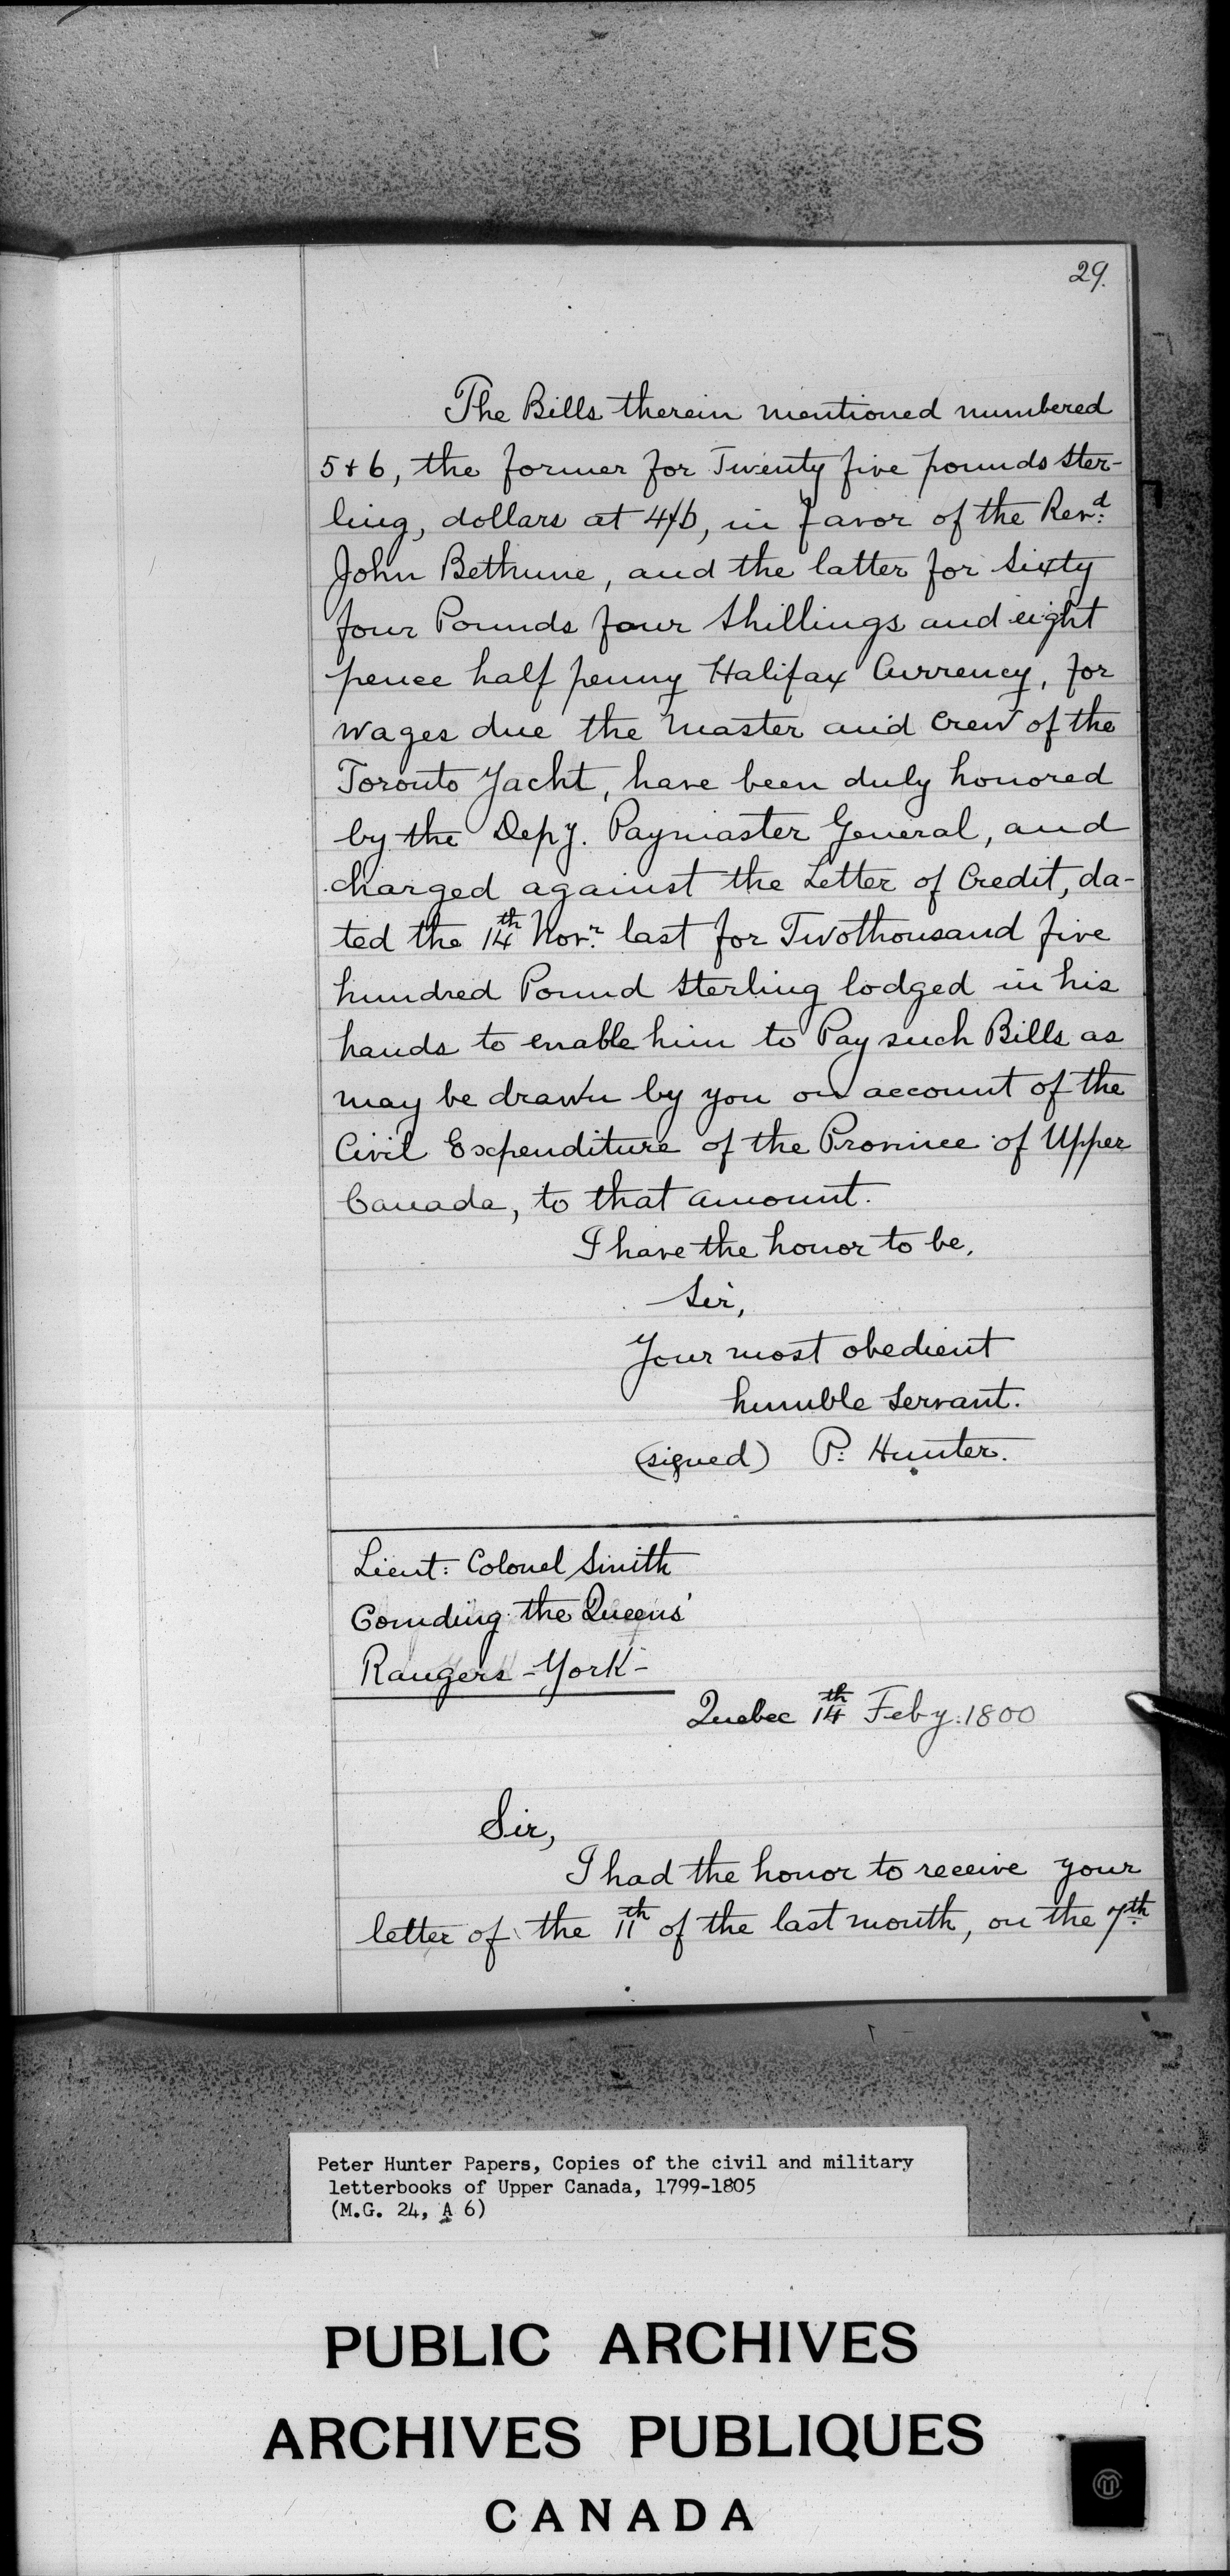 29.
The Bills therein mentioned numbered
5 & 6, the former for Twenty five pounds Ster-
ling, dollars at 4/6, in favor of the Revd:
John Bethune, and the latter for Sixty
four Pounds four Shillings and eight
pence half penny Halifax Currency, for
wages due the Master and Crew of the
Toronto Yacht, have been duly honored
by the Depy. Paymaster General, and
charged against the Letter of Credit, da-
ted the 14th Novr. last for Twothousand five
hundred Pound Sterling lodged in his
hands to enable him to Pay such Bills as
may be drawn by you on account of the
Civil Expenditure of the Province of Upper
Canada, to that amount.
I have the honor to be,
Sir,
Your most obedient
humble Servant.
(signed) P: Hunter.
Lieut: Colonel Smith
Comding the Queens'
Rangers - York -
Quebec 14th Feby. 1800
Sir,
I had the honor to receive your
letter of the 11th of the last month, on the 7th
Peter Hunter Papers, Copies of the civil and military
letterbooks of Upper Canada, 1799-1805
(M.G. 24, A 6)
PUBLIC ARCHIVES
ARCHIVES PUBLIQUES
CANADA